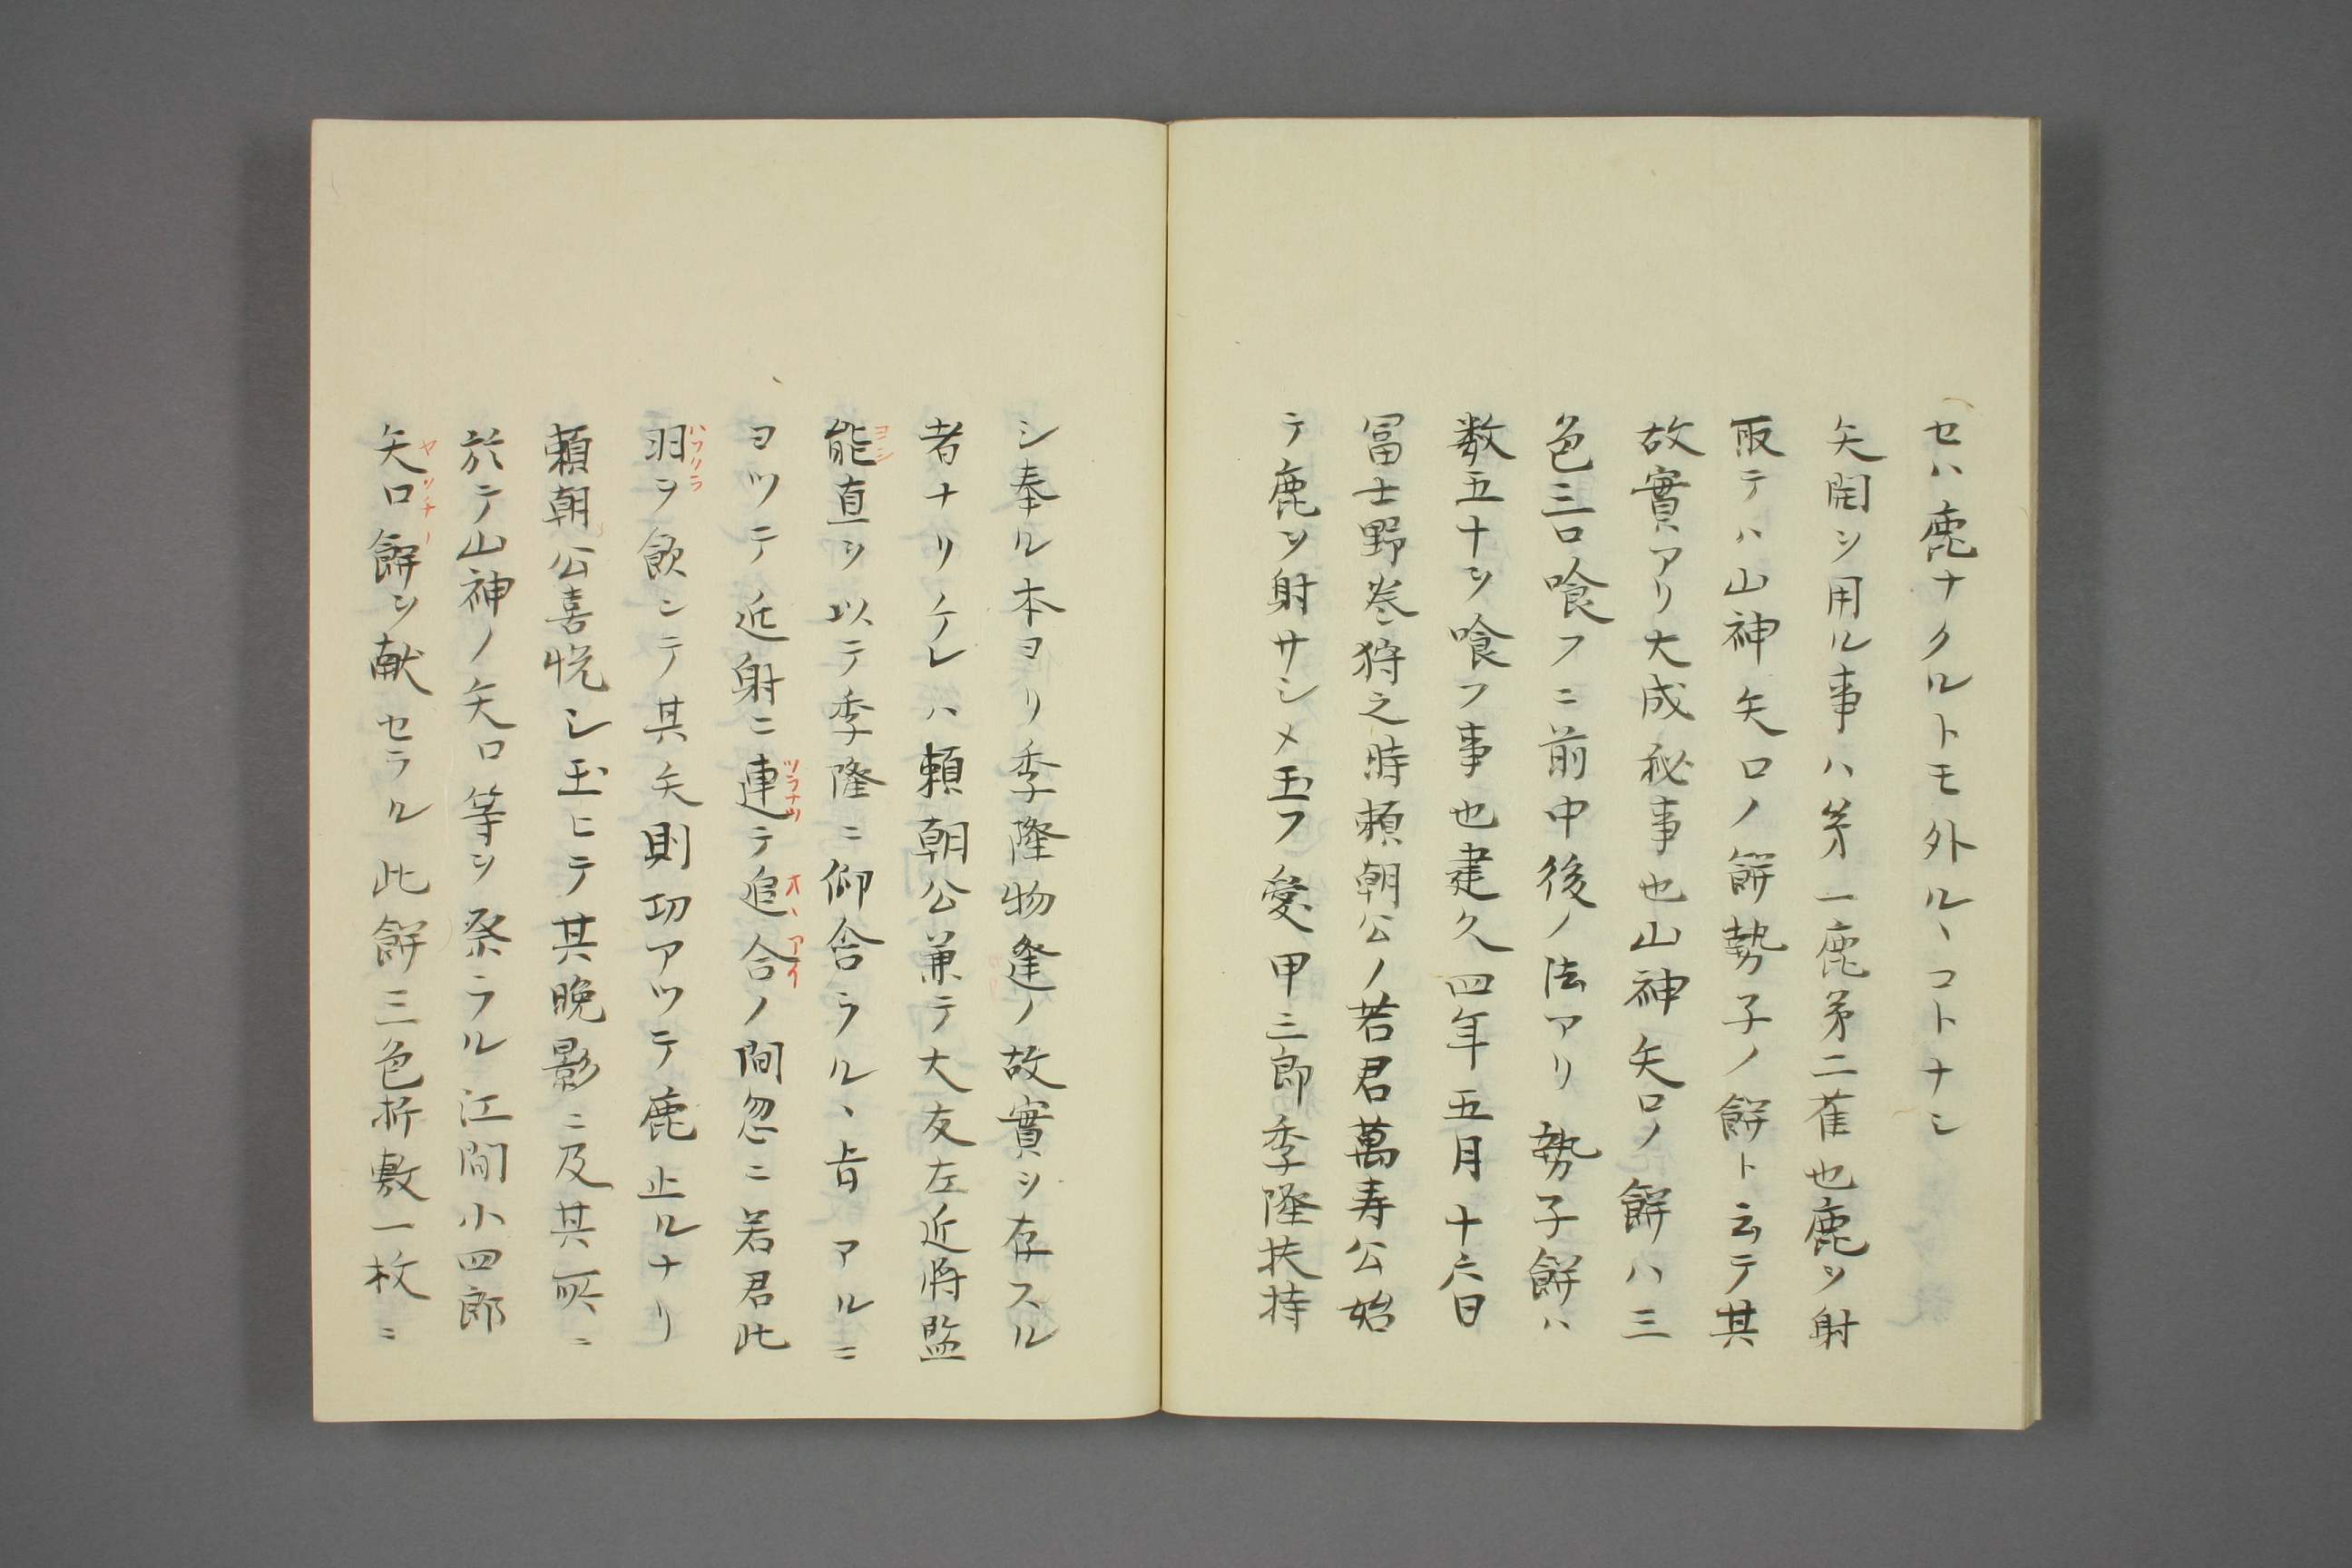 セハ鹿ナクルトモ外ル、コトナシ
矢開ヲ用ル事ハ苐一鹿苐二雀也鹿ヲ射
取テハ山神矢口ノ餅勢子ノ餅ト云テ其
故實アリ大成秘事也山神矢口ノ餅ハ三
色三口喰フニ前中後ノ法アリ勢子餅ハ
数五十ヲ喰フ事也建久四年五月十六日
冨士野巻狩之時頼朝公ノ若君萬寿公始
テ鹿ヲ射サシメ玉フ愛甲三郎季隆扶持
シ奉ル本ヨリ季隆物逢ノ故實ヲ存スル
者ナリケレハ頼朝公兼テ大友左近将監
能直ヲ以テ季隆ニ仰含ラル、旨アルニ
ヨツテ近射ニ連テ追合ノ間忽ニ若君此
羽ヲ飲ンテ其矢則功アツテ鹿止ルナリ
頼朝公喜悦シ玉ヒテ其晩影ニ及其所ニ
於テ山神ノ矢口等ヲ祭ラル江間小四郎
矢口餅ヲ献セラル此餅三色折敷一枚ニ